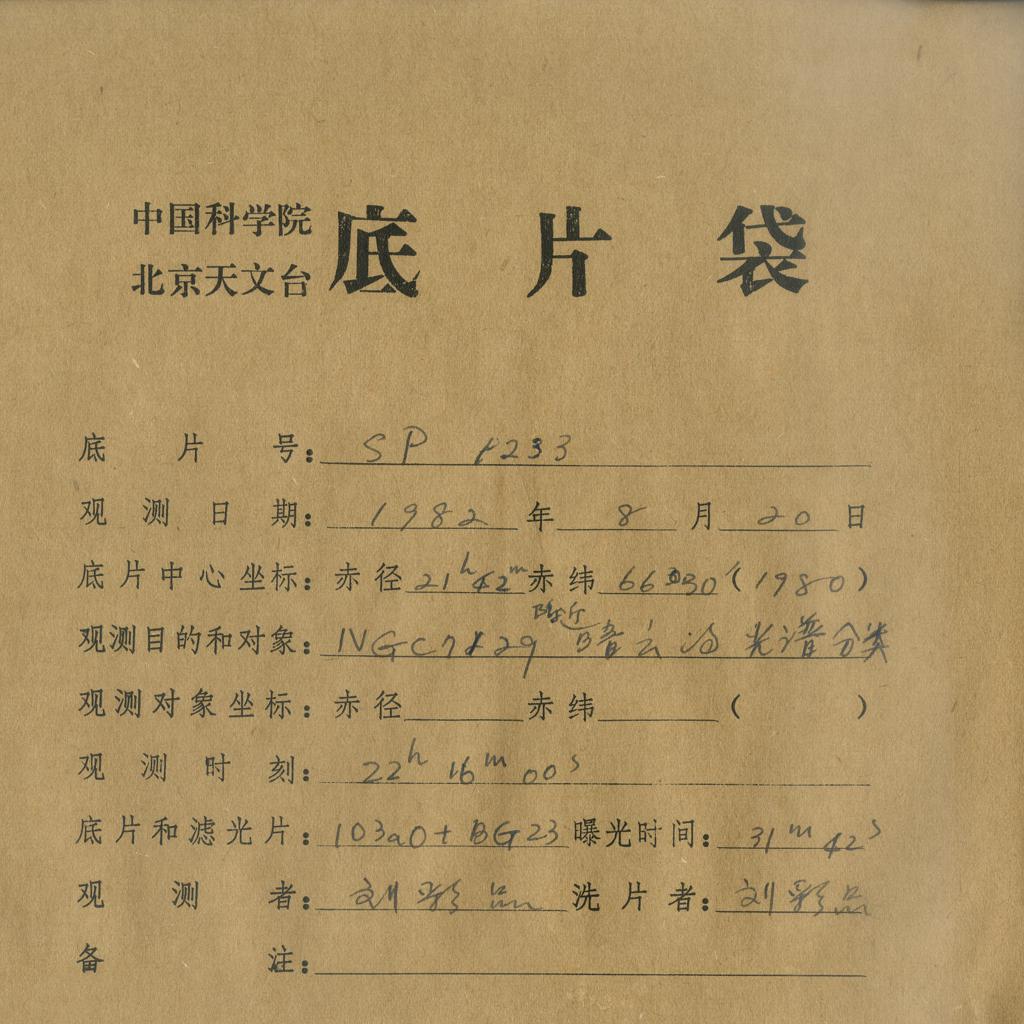 中国科学院
北京天文台
底片袋
底片号：SP 1233
观测日期：1982年8月20日
底片中心坐标：赤径21h42m赤纬66°30′(1980)
附近
观测目的和对象：NGC7129 暗云 光谱分类
观测对象坐标：赤径 赤纬 ( )
观测时刻：22h 16m 00s
底片和滤光片：103aO+BG23 曝光时间：31m 42s
观测者：刘彩品 洗片者：刘彩品
备注：